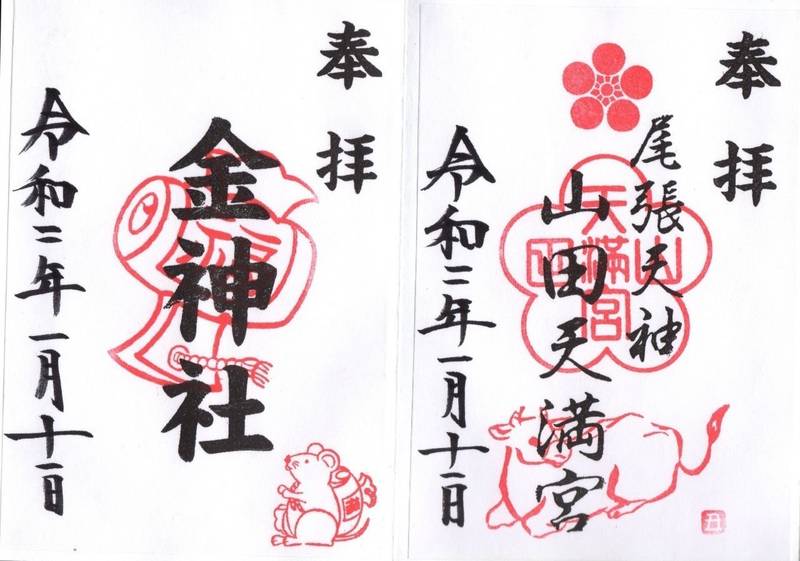 奉拝
尾張天神
山田天満宮
山田
天満宮
令和二年一月十一日
奉拝
金神社
令和二年一月十一日